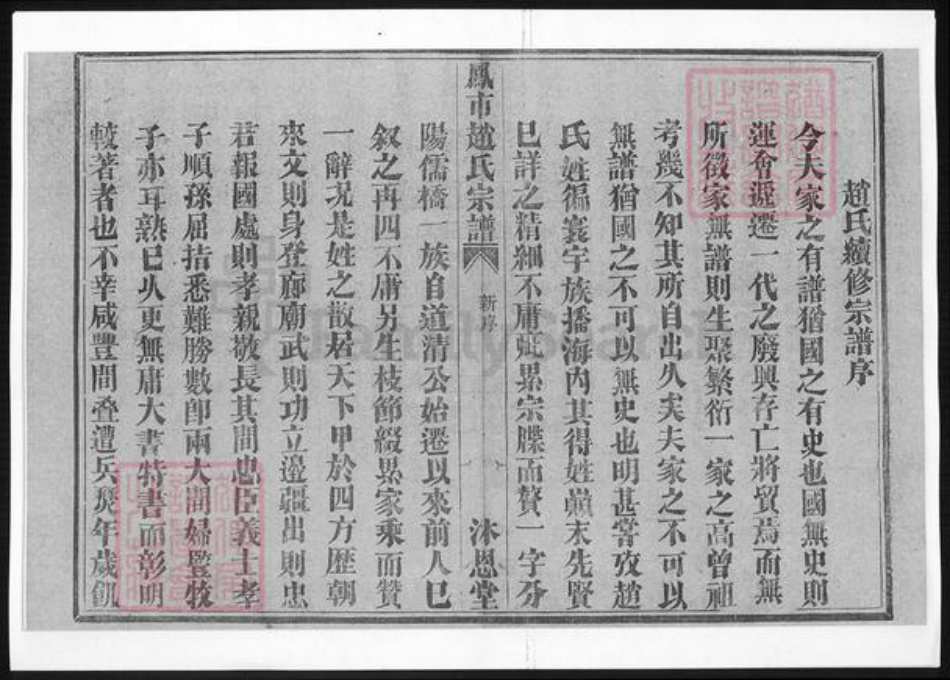 趙氏續修宗譜序
今夫家之有譜猶國之有史也國無史則
運會遞遷一代之廢興存亡將貿焉而無
所徵家無譜則生聚繁衍一家之高曾祖
考幾不知其所自出久矣夫家之不可以
無譜猶國之不可以無史也明甚嘗攷趙
氏姓徧寰宇族播海內其得姓巔末先賢
已詳之精細不庸玼累宗牒而贅一字夯
鳳市趙氏宗譜
新序
沐恩堂
陽儒橋一族自道清公始遷以來前人已
叙之再四不庸另生枝節綴累家乘而贊
一辭况是姓之散居天下甲於四方歷朝
來文則身登廊廟武則功立邊疆出則忠
君報國處則孝親敬長其間忠臣義士孝
子順孫屈指悉難勝數卽兩大間婦豎牧
子亦耳熟已久更無庸大書特書而彰明
較著者也不幸咸豐間叠遭兵燹年歲飢